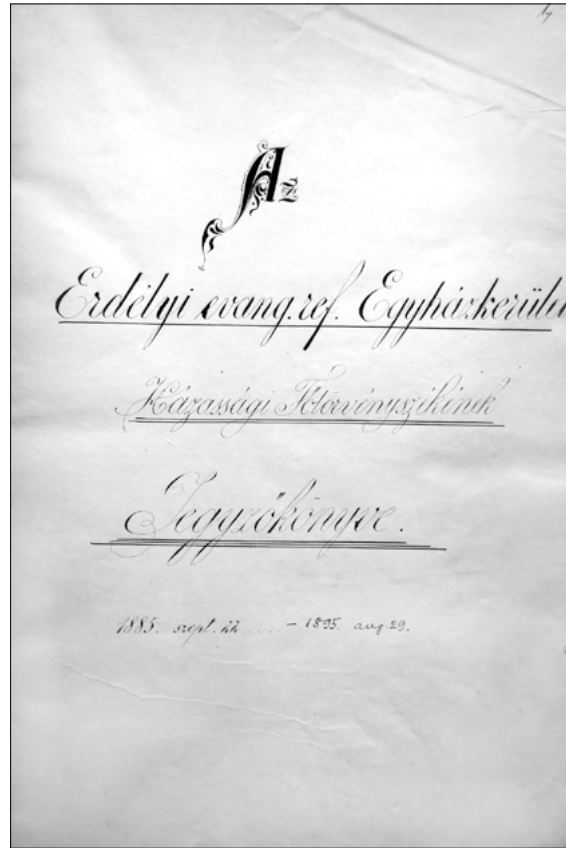 Az
Erdélyi evang. ref. Egyházkerület
Házassági Főtörvényszékének
Jegyzőkönyve.
1885. szept. ..... – 1895. aug. 29.